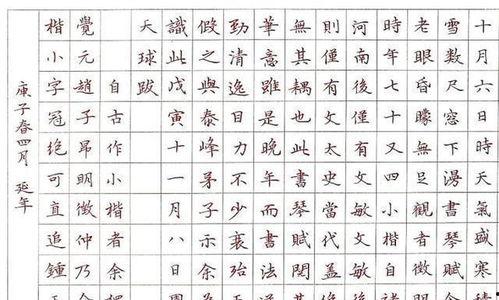 十月六日時天氣盛寒積
雪數尺窓日下湯書琴賦
老眼昏曚無足觀者自
時年七十又四小楷徵諸
河南後僅有文敏文敏後
則僅有文太史當代蓋
無其耦也此書琴賦閱
華意雖是晚年而書法
勁清逸目力不少衰殆
假之與泰峰弟子示余
識此戊寅十一月八日
天球跋
自古作小楷者余
覺元趙子昂明徵仲乃
楷小字冠絕可直追鍾王
庚子春四月 延年